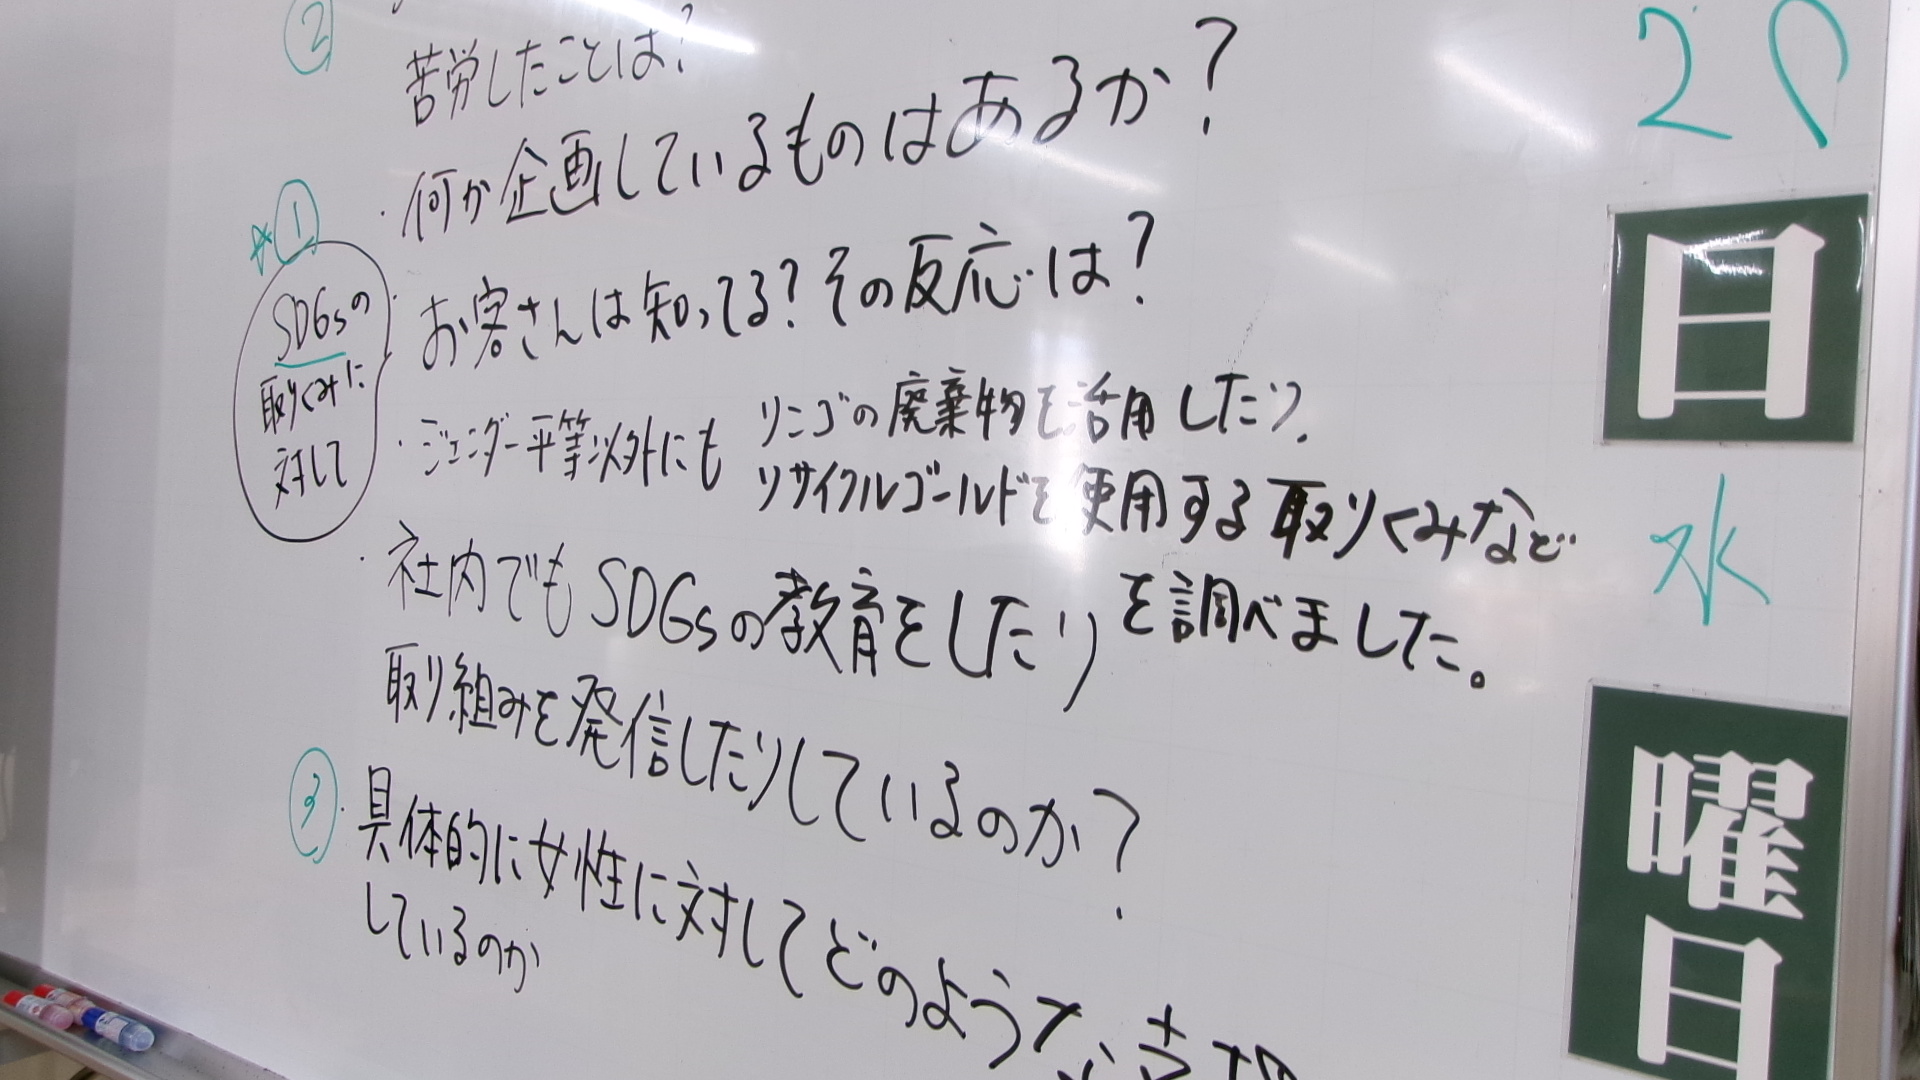 ②
苦労したことは?
・何か企画しているものはあるか?
☆①
SDGsの
取りくみに
対して
・お客さんは知ってる?その反応は?
・ジェンダー平等以外にも
リンゴの廃棄物を活用したり、
リサイクルゴールドを使用する取りくみなど
を調べました。
・社内でもSDGsの教育をしたり
取り組みを発信したりしているのか?
③・具体的に女性に対してどのような支援
しているのか
日
水
曜
日